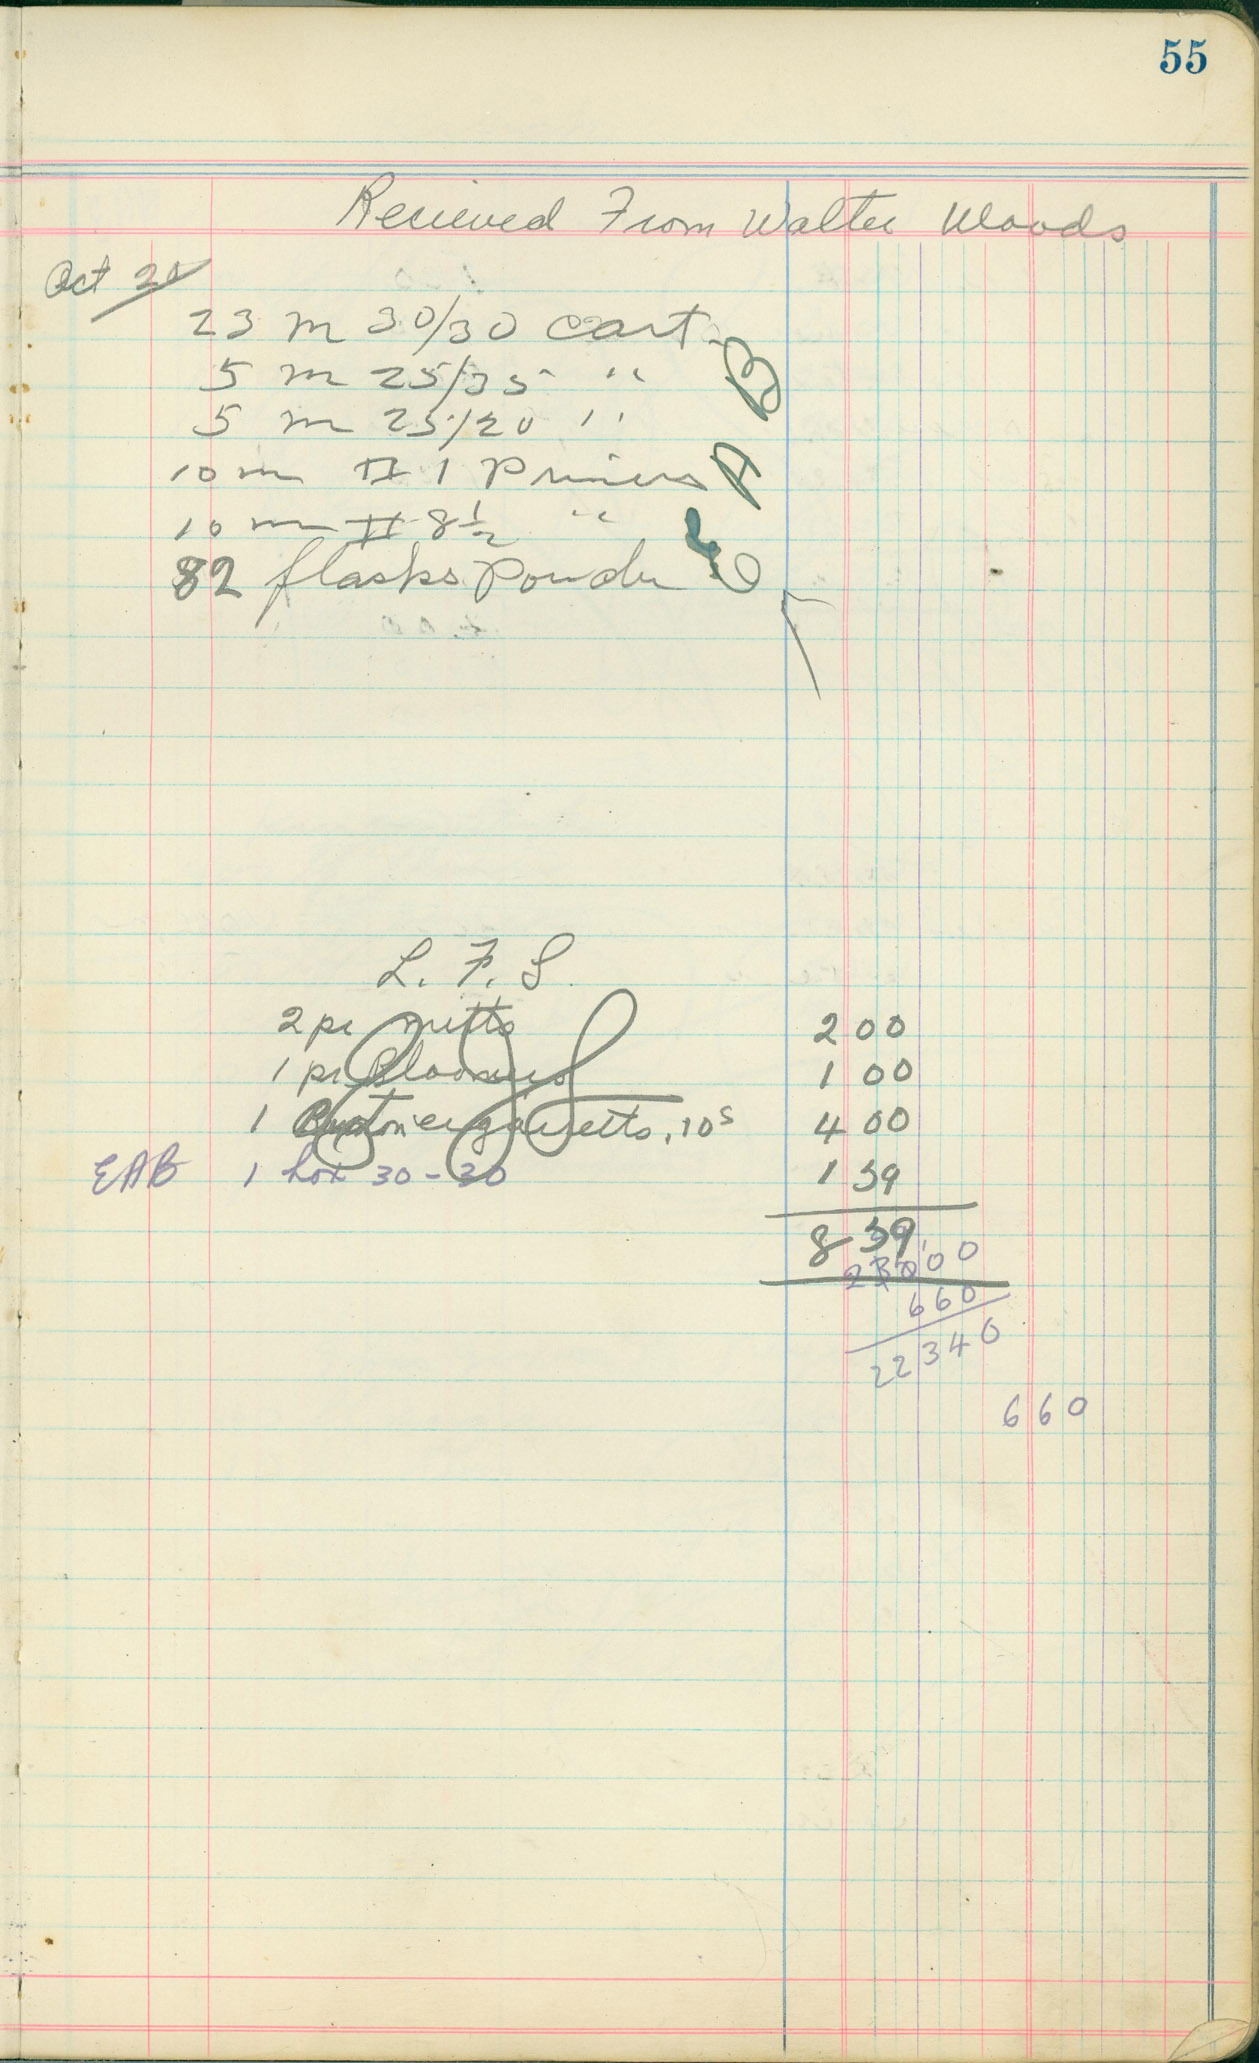 55
Recieved From Walter Woods
Oct
23 m 30/30 Cart.
5 m 25/35 "
5 m 25/20 "
10 m # 1 Primers
10 m # 8½ "
82 flasks Powder
E A B
L. F. S.
2 pr mitts 2 00
1 pr Bloomers 1 00
1 cigaretts, 10s 4 00
EAB 1 box 30-30 1 39
8 39
23000
660
22340
660